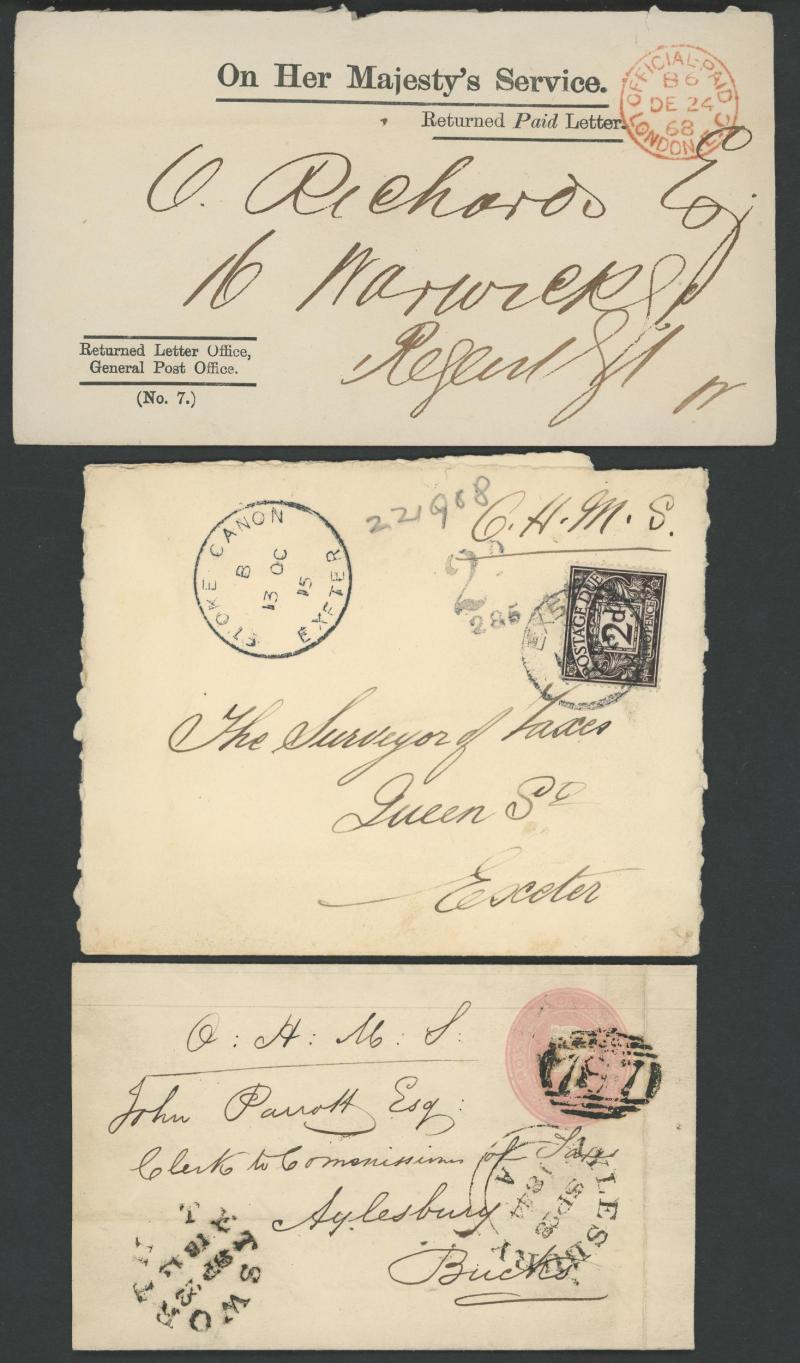 On Her Majesty's Service.
Returned Paid Letter.
OFFICIAL-PAID
B6
DE 24
68
LONDON.E.C
C. Richards Esq
16 Warwick St
Regent St
W
Returned Letter Office,
General Post Office.
(No. 7.)
STOKE CANON
B
13 OC
15
EXETER
221968
O.H.M.S.
2D
285
POSTAGE DUE
2d
TWOPENCE
The Surveyor of Taxes
Queen St
Exeter
O: H: M: S:
John Parrott Esq:
Clerk to Commissioners of Taxes
Aylesbury
Bucks
AYLESBURY
SP 28
1844
A
SP 22